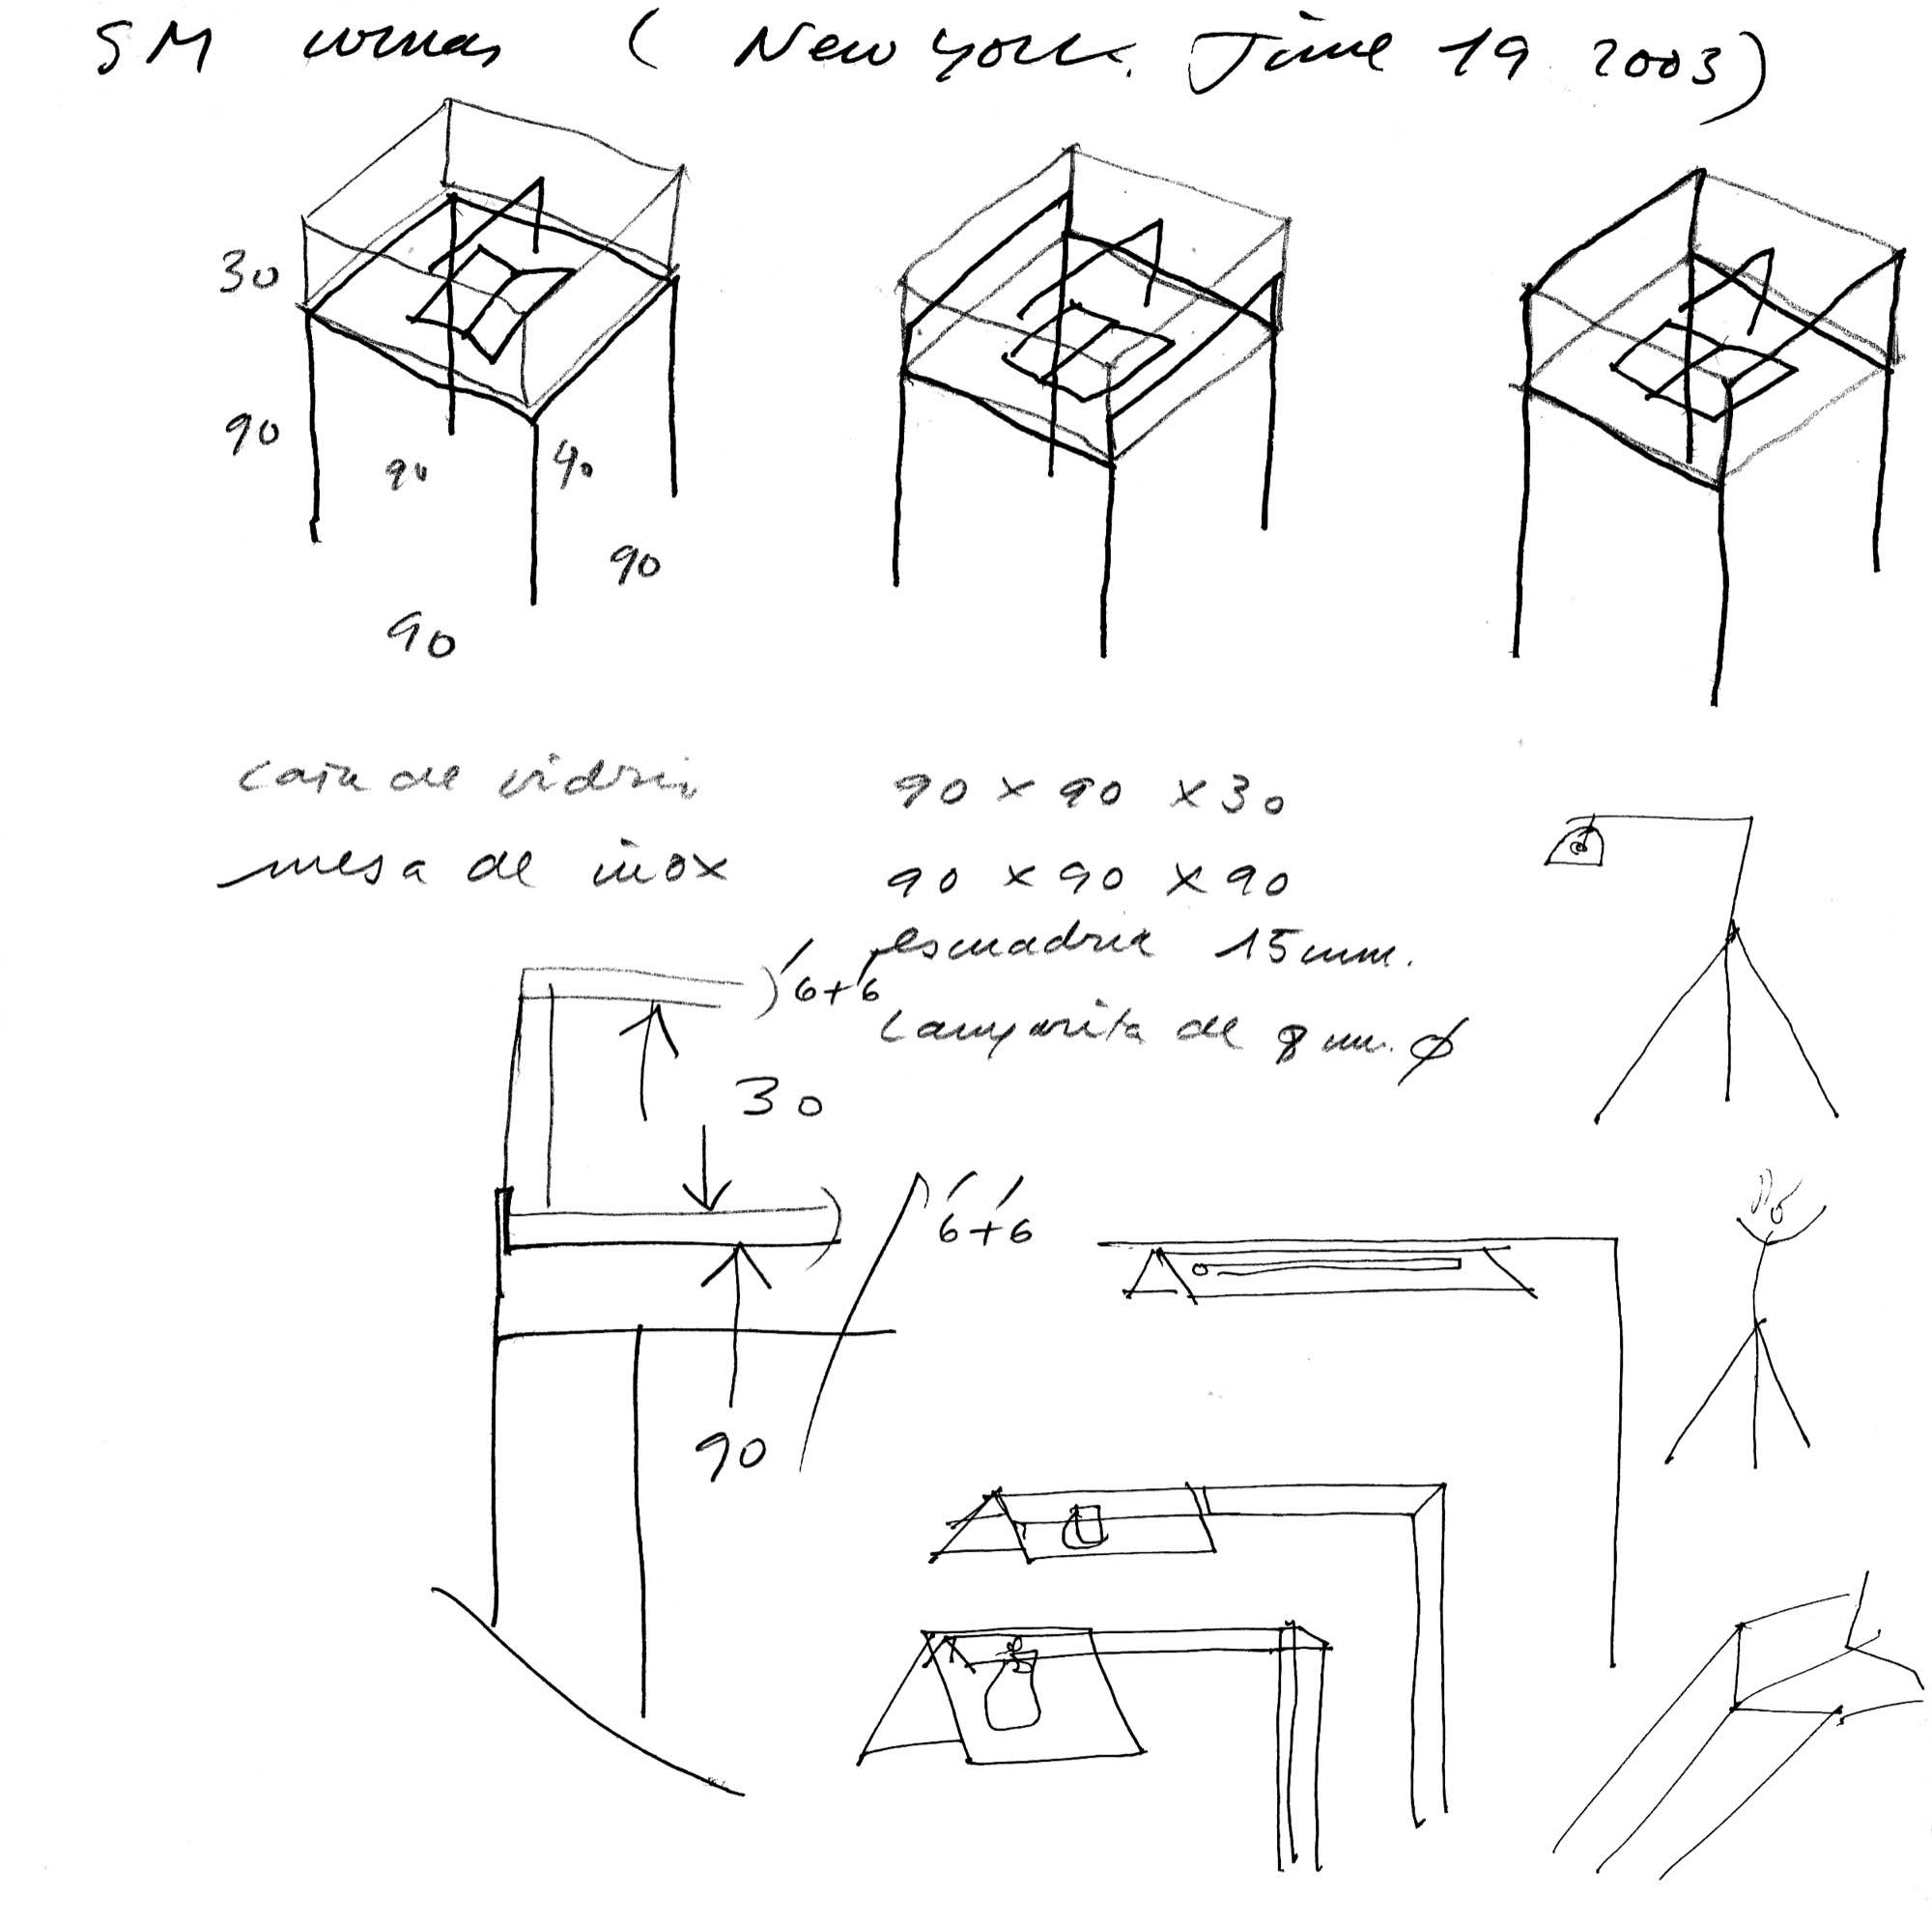 SM urnas ( New York. June 19 2003)
30
90
90 40
90
90
caja de vidrio 90 x 90 x 30
mesa de inox 90 x 90 x 90
escuadria 15 mm.
6+6
lamparita de 8 mm. ø
30
6+6
90